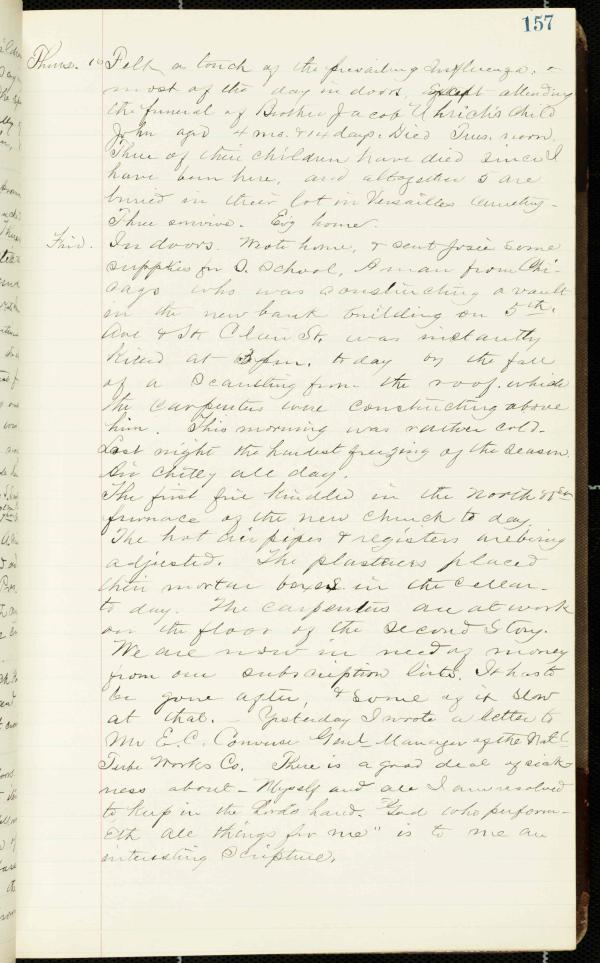 157
Thurs. 16 Felt a touch of the prevailing Influenza. &
most of the day in doors, except attending
the funeral of Brother Jacob Uhrich's Child
John aged 4 mo. & 14 days. Died Tues. noon.
Three of their children have died since I
have been here, and altogether 5 are
buried in their lot in Versailles Cemetery.
Three survive. Ev'g home.
Frid. In doors. Wrote home, & sent Josie some
supplies for S. School. A man from Chi-
cago who was constructing a vault
in the new bank building on 5th.
Ave & St. Clair St. was instantly
killed at 3 pm. today by the fall
of a Scantling from the roof. which
the Carpenters were constructing above
him. This morning was rather cold.
Last night the hardest freezing of the Season.
Air chilly all day.
The first fire kindled in the North
furnace of the new Church to day.
The hot air pipes & registers are being
adjusted. The plasterers placed
their mortar boxes in the Cellar
to day. The carpenters are at work
on the floor of the Second Story.
We are now in need of money
from our subscription lists. It has to
be gone after, & some of it slow
at that. - Yesterday I wrote a letter to
Mr E. C. Converse Genl Manager of the Natl
Tube Works Co. There is a good deal of sick-
ness about - Myself and all I am resolved
to keep in the Lord's hand. "God who perform-
eth all things for me" is to me an
interesting Scripture.